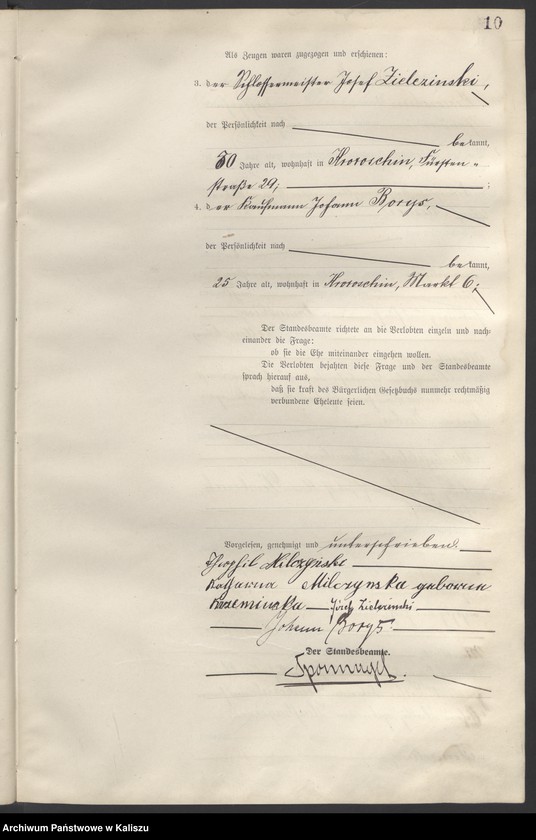 10
Als Zeugen waren zugezogen und erschienen:
3. der Schlossermeister Josef Zielezinski,
der Persönlichkeit nach
bekannt,
30 Jahre alt, wohnhaft in Krotoschin, Fürsten-
straße 29;
4. der Kaufmann Johann Borys,
der Persönlichkeit nach
bekannt,
25 Jahre alt, wohnhaft in Krotoschin, Markt 6;
Der Standesbeamte richtete an die Verlobten einzeln und nach-
einander die Frage:
ob sie die Ehe miteinander eingehen wollen.
Die Verlobten bejahten diese Frage und der Standesbeamte
sprach hierauf aus,
daß sie kraft des Bürgerlichen Gesetzbuchs nunmehr rechtmäßig
verbundene Eheleute seien.
Vorgelesen, genehmigt und unterschrieben.
Theophil Milczyński
Katharina Milczynska geborene
Krzeminska Józef Zielezinski
Johann Borys.
Der Standesbeamte.
Sponnagel.
Archiwum Państwowe w Kaliszu